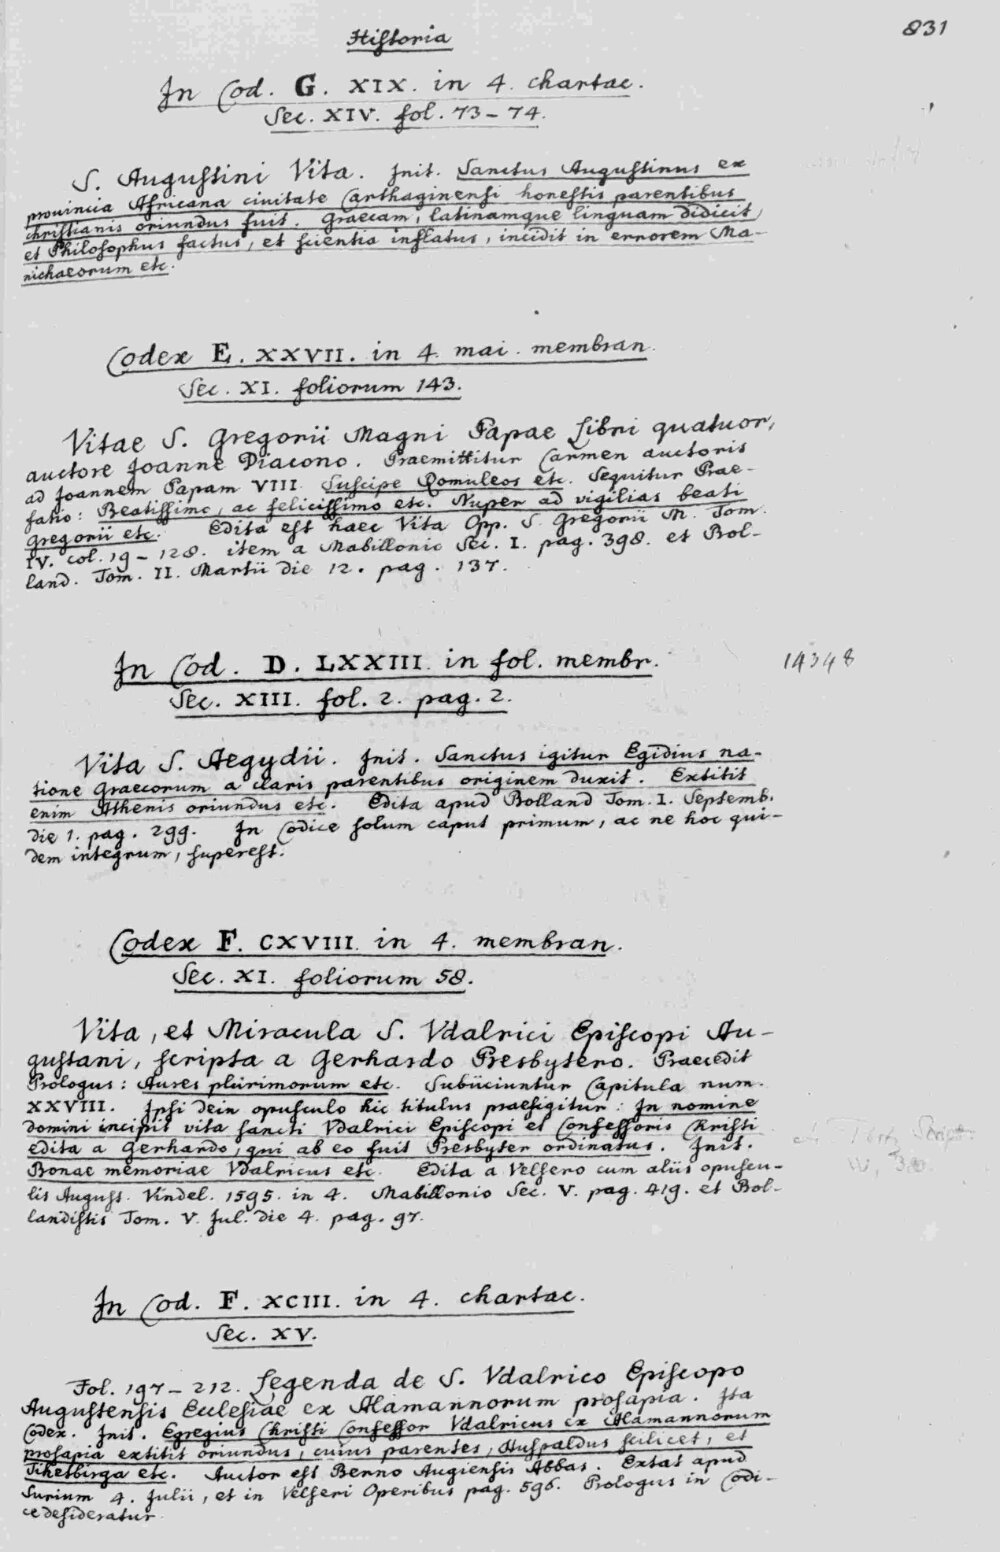 Historia
831
In Cod. G. XIX. in 4. chartac.
Sec. XIV. fol. 73-74.
S. Augustini Vita. Init. Sanctus Augustinus ex
prouincia Africana ciuitate Carthaginensi honestis parentibus
christianis oriundus fuit. Graecam, latinamque linguam didicit,
et Philosophus factus, et scientia inflatus, incidit in errorem Ma-
nichaeorum etc.
Codex E. XXVII. in 4. mai. membran.
Sec. XI. foliorum 143.
Vitae S. Gregorii Magni Papae Libri quatuor,
auctore Joanne Diacono. Praemittitur Carmen auctoris
ad Joannem Papam VIII. Suscipe Romuleos etc. Sequitur Prae-
fatio: Beatissimo, ac felicissimo etc. Nuper ad vigilias beati
Gregorii etc. Edita est haec Vita Opp. S. Gregorii M. Tom.
IV. col. 19-128. item a Mabillonio Sec. I. pag. 398. et Bol-
land. Tom. II. Martii die 12. pag. 137.
In Cod. D. LXXIII. in fol. membr.
14348
Sec. XIII. fol. 2. pag. 2.
Vita S. Aegydii. Init. Sanctus igitur Egidius na-
tione Graecorum a claris parentibus originem duxit. Extitit
enim Athenis oriundus etc. Edita apud Bolland Tom. I. Septemb.
die 1. pag. 299. In Codice solum caput primum, ac ne hoc qui-
dem integrum, superest.
Codex F. CXVIII. in 4. membran.
Sec. XI. foliorum 58.
Vita, et Miracula S. Vdalrici Episcopi Au-
gustani, scripta a Gerhardo Presbytero. Praecedit
Prologus: Aures plurimorum etc. Subiiciuntur Capitula num.
XXVIII. Ipsi dein opusculo hic titulus praefigitur: In nomine
domini incipit vita sancti Vdalrici Episcopi et Confessoris Christi
edita a Gerhardo, qui ab eo fuit Presbyter ordinatus. Init.
Bonae memoriae Vdalricus etc. Edita a Velsero cum aliis opuscu-
lis August. Vindel. 1595. in 4. Mabillonio Sec. V. pag. 419. et Bol-
landistis Tom. V. Jul. die 4. pag. 97.
Script.
In Cod. F. XCIII. in 4. chartac.
Sec. XV.
Fol. 197-212. Legenda de S. Vdalrico Episcopo
Augustensis Ecclesiae ex Alamannorum prosapia. Ita
Codex. Init. Egregius Christi Confessor Vdalricus ex Alamannorum
prosapia extitit oriundus, cuius parentes, Huspaldus scilicet, et
Thetbirga etc. Auctor est Berno Augiensis Abbas. Extat apud
Surium 4. Julii, et in Velseri Operibus pag. 596. Prologus in Codi-
ce desideratur.